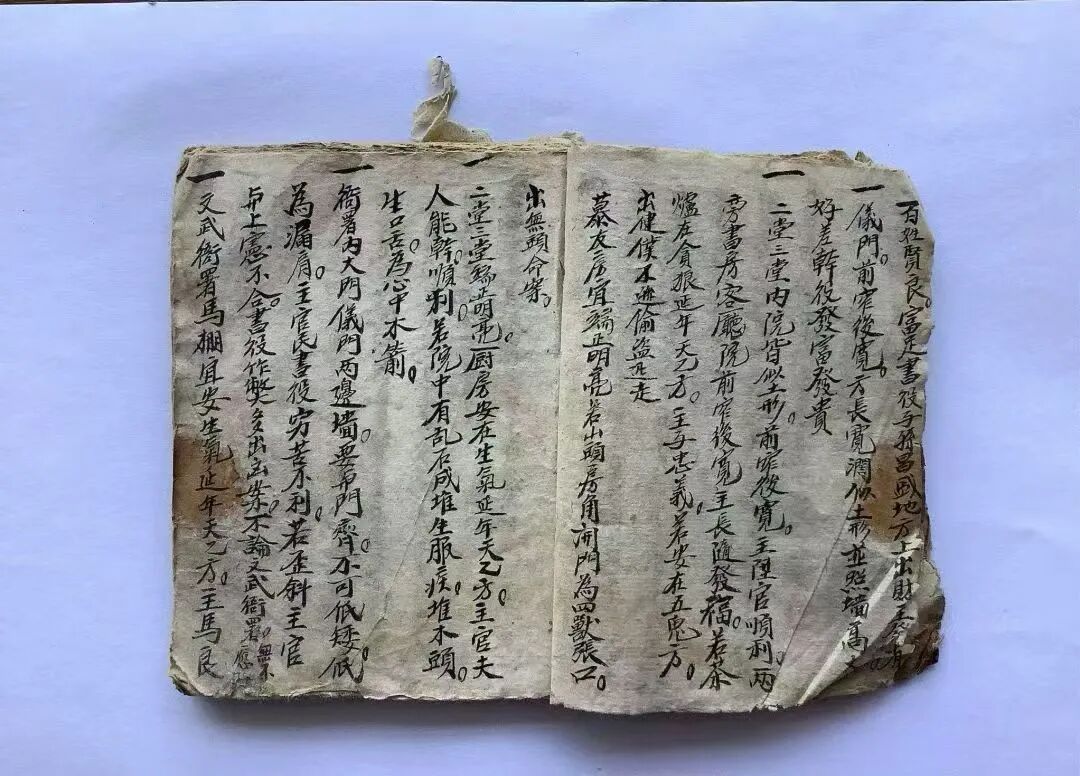 百姓賢良。富足書役子孫昌盛地方上出財主
一儀門。前窄後寬。方長寬濶似土形並照墻高
好差幹役發富發貴
一二堂三堂內院皆似土形。前窄後寬。主陞官順利。兩
旁書房客廳院前窄後寬主長隨發福。若茶
爐在貪狼延年天乙方。主与忠義。若安在五鬼方。
出健僕不逊偷盗逃走
幕友房宜端正明亮若山頭房角衝門為四獸張口。
出無頭命案。
一二堂三堂端萌亮厨房安在生氣延年天乙方。主官夫
人能幹順利。若院中有乱石成堆生服疾堆木頭。
生口舌。為心中木箭。
一衙署內大門儀門兩邊墻。要与門齊不可低矮。低
為漏肩。主官民書役穷苦不利。若歪斜主官
与上憲不合。書役作弊多出凶案。不論文武衙署。無不應
一文武衙署馬棚宜安生氣延年天乙方。主馬良